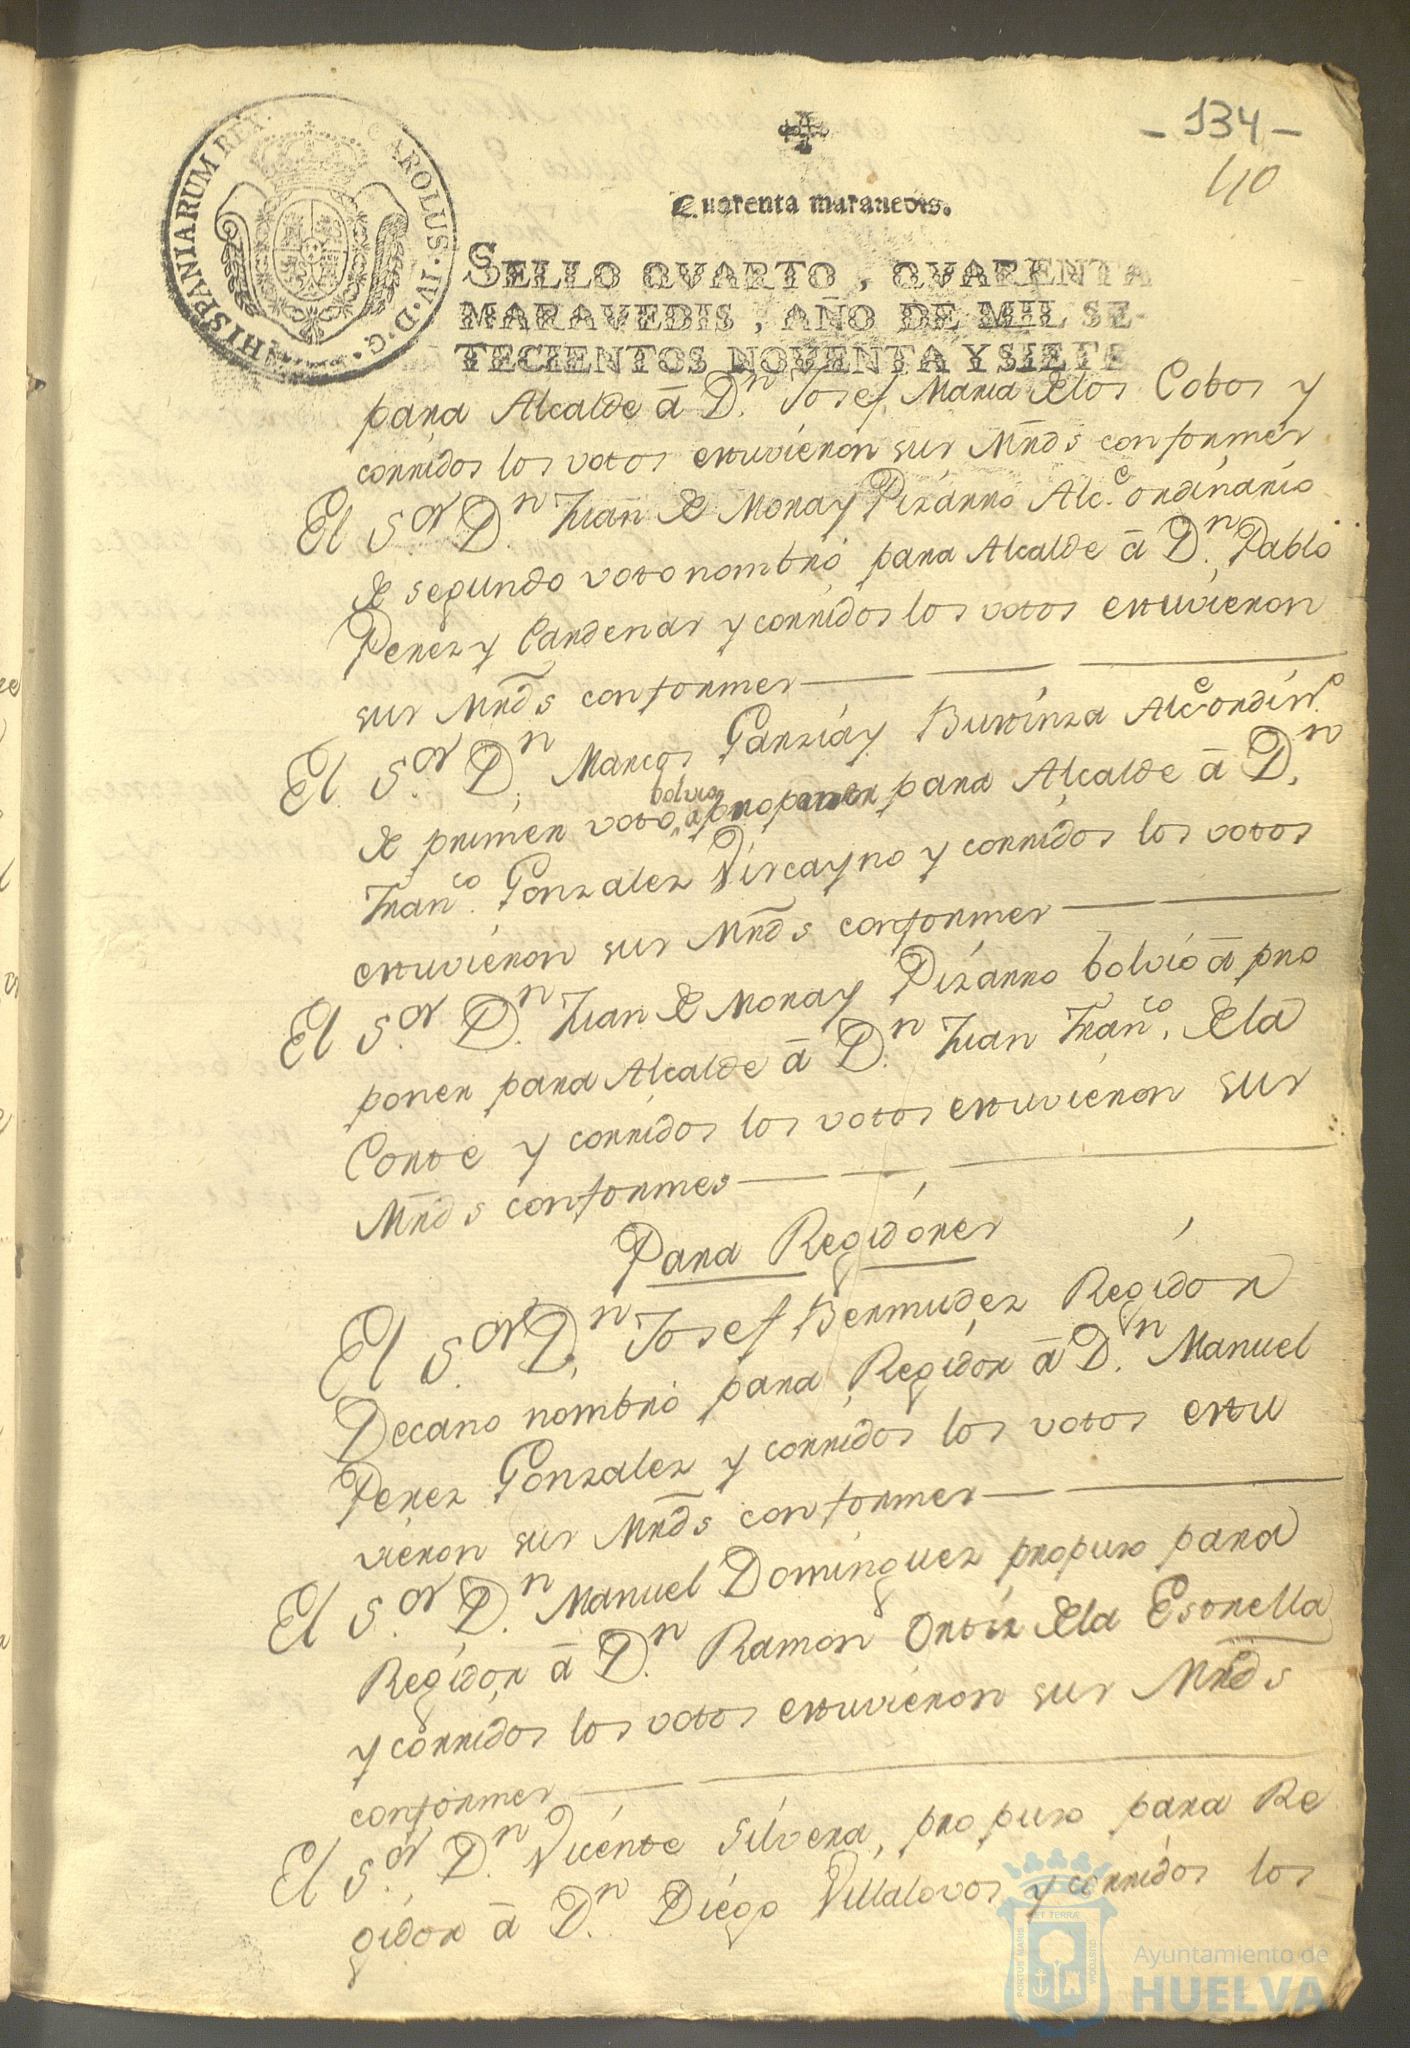 - 134 -
110
Quarenta maravedis.
CAROLUS·IV·D·G· HISPANIARUM REX·
SELLO QVARTO, QVARENTA
MARAVEDIS, AÑO DE MIL SE-
TECIENTOS NOVENTA Y SIETE
para Alcalde â Dn. Josef Maria delos Cobos y
corridos los votos estuvieron sus Mrds conformes
El Sor. Dn. Juan de Mora y Pizarro Alce. ordinario
de segundo voto nombrò para Alcalde â Dn. Pablo
Perez y Cardenas y corridos los votos estuvieron
sus Mrds conformes
El Sor. Dn. Marcos Garzia y Burrinza Alce ordinro.
de primer voto bolvio a proponer para Alcalde â Dn.
Franco. Gonzalez Viscayno y corridos los votos
estuvieron sus Mrds conformes
El Sor. Dn. Juan de Mora y Pizarro bolvio â pro
poner para Alcalde â Dn. Juan Franco. dela
Corte y corridos los votos estuvieron sus
Mrds conformes
Para Regidores
El Sor. Dn. Josef Bermudez Regidor
Decano nombrò para Regidor â Dn. Manuel
Perez Gonzalez y corridos los votos estu
vieron sus Mrds conformes
El Sor. Dn. Manuel Dominguez propuso para
Regidor â Dn. Ramon Ortiz dela Estrella
y corridos los votos estuvieron sus Mrds
conformes
El Sor. Dn. Vicente Silvera, propuso para Re
gidor â Dn. Diego Villalovos y corridos los
PORTUS MARIS ET TERRÆ CUSTODIA
Ayuntamiento de
HUELVA